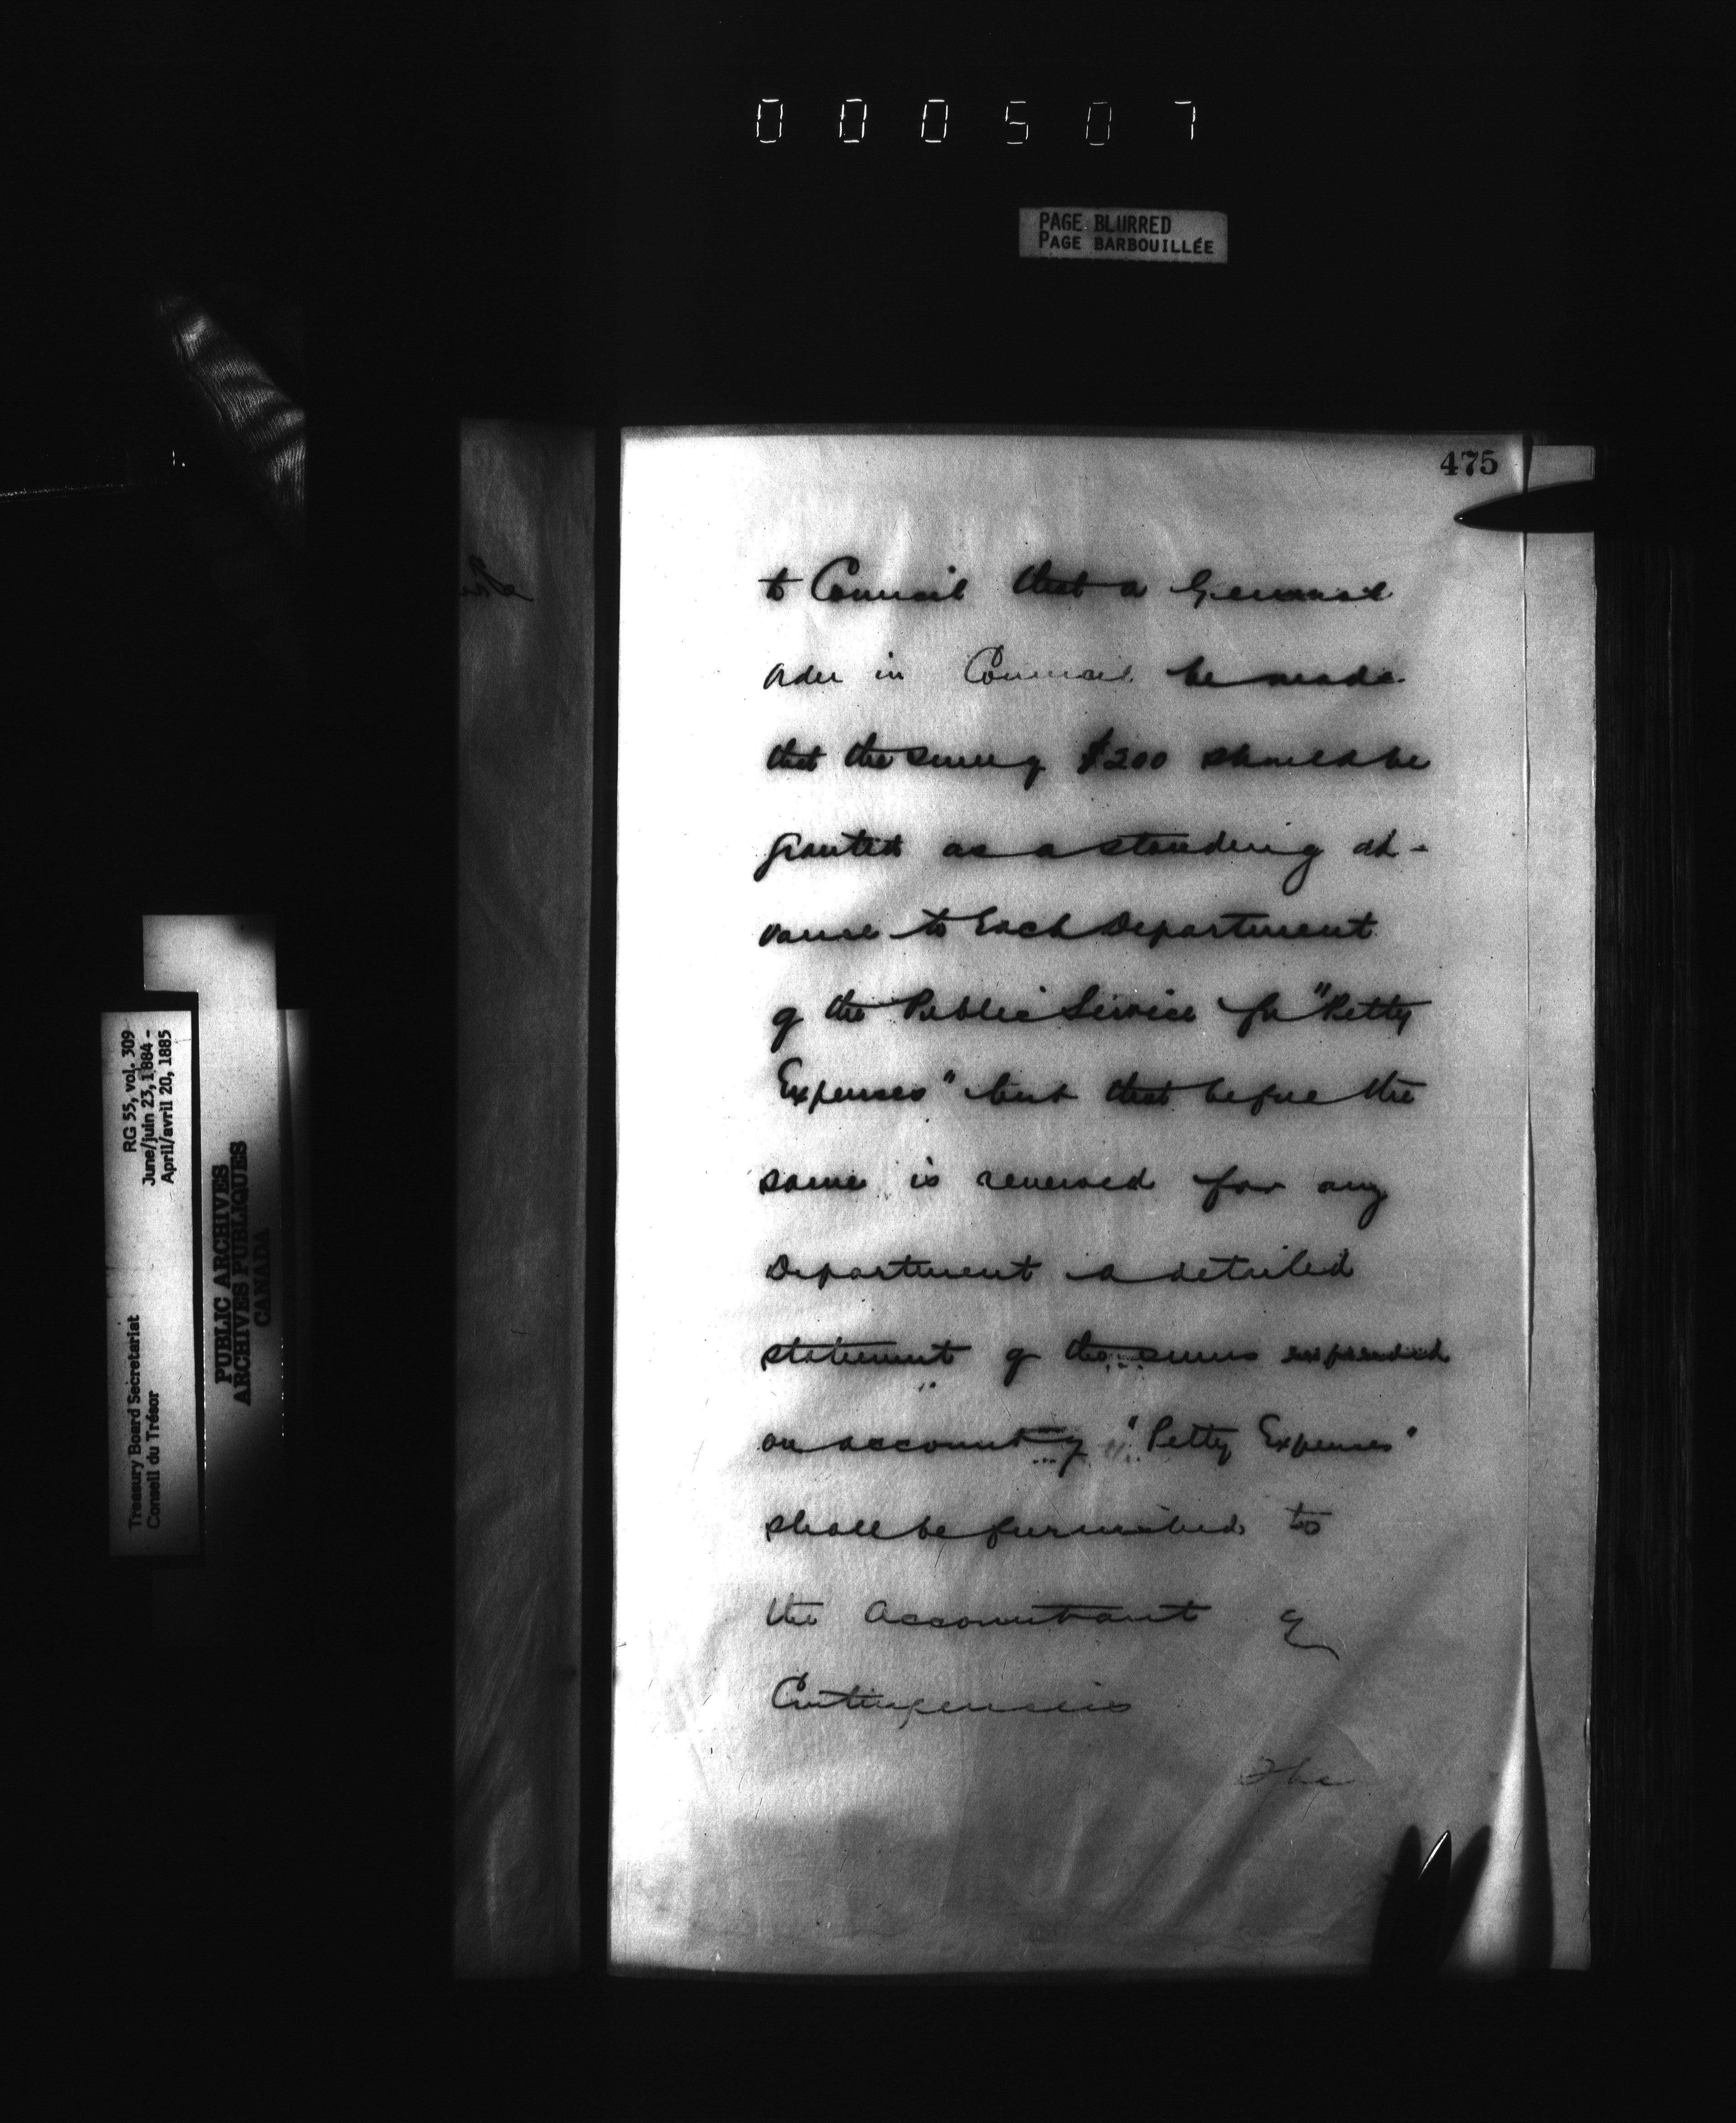 000507
PAGE BLURRED
PAGE BARBOUILLÉE
475
to Council that a General
Order in Council be made
that the sum of $200 should be
granted as a standing ad-
vance to Each Department
of the Public Service for "Petty
Expenses" but that before the
same is renewed for any
Department a detailed
statement of the sums expended
on account of "Petty Expenses"
shall be furnished to
the Accountant of
Contingencies
The
RG 55, vol. 309
June/juin 23, 1884 -
April/avril 20, 1885
Treasury Board Secretariat
Conseil du Trésor
PUBLIC ARCHIVES
ARCHIVES PUBLIQUES
CANADA